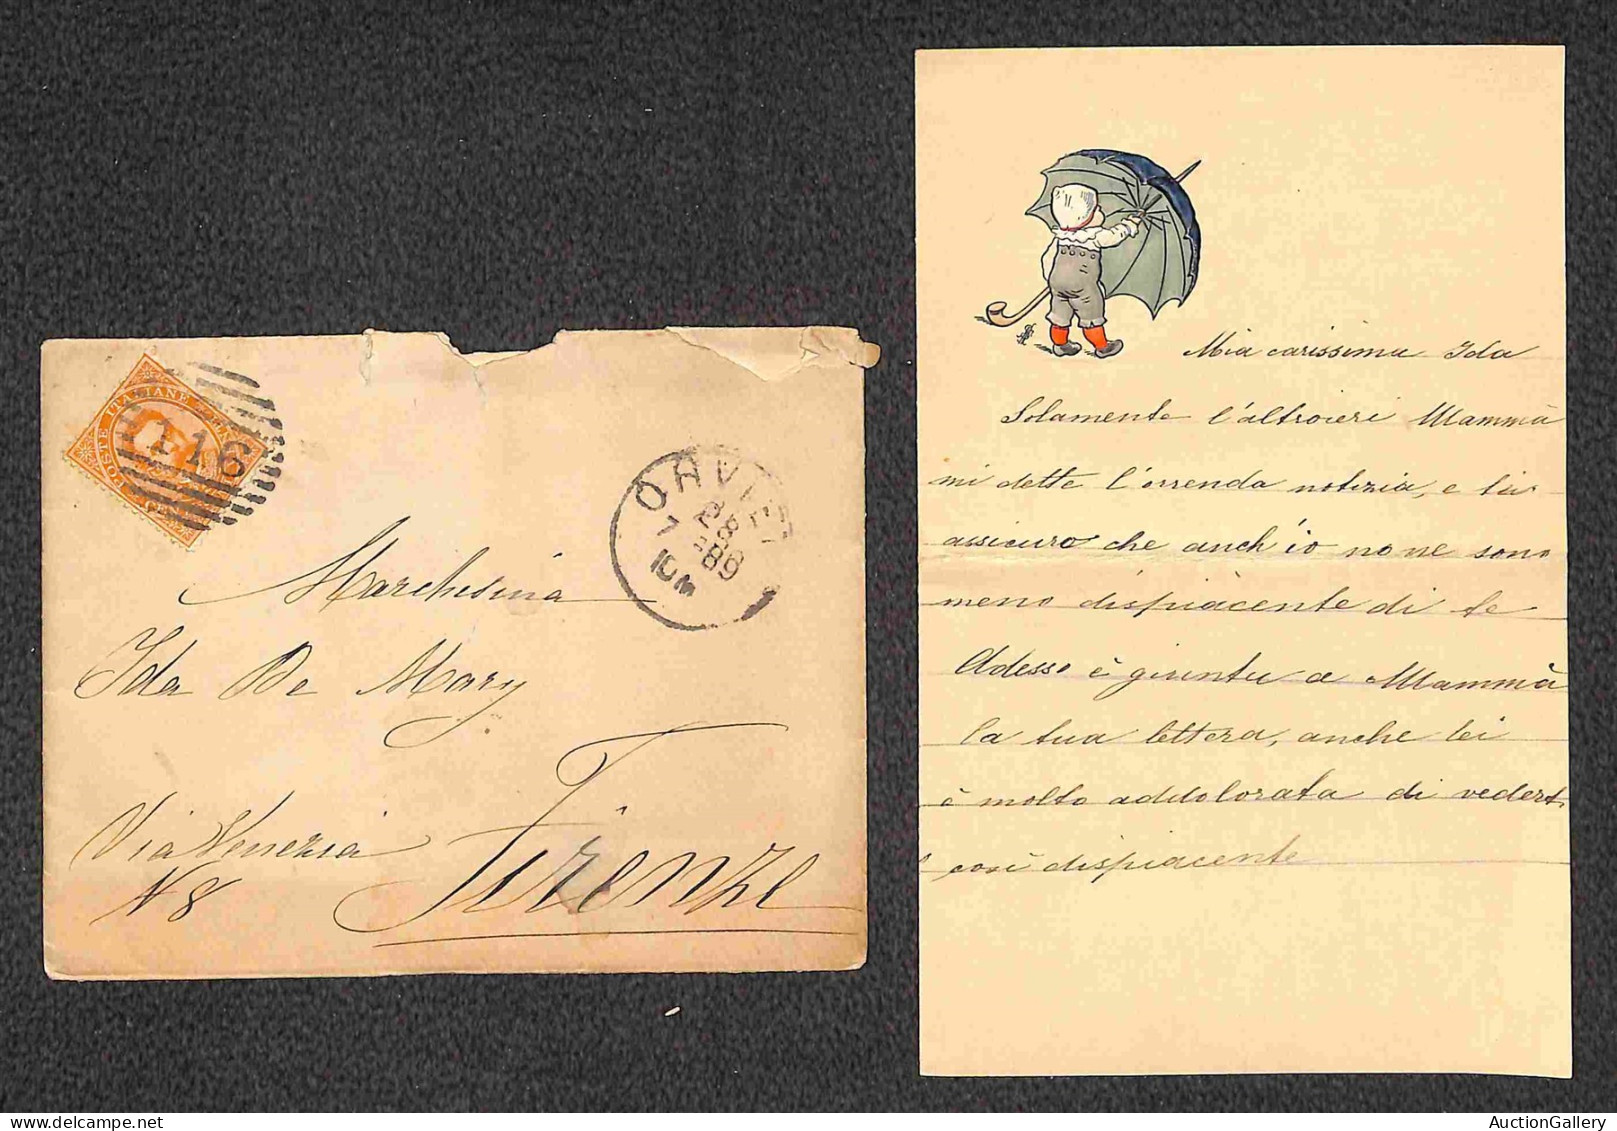 POSTE ITALIANE
116
ORVIETO
7
89
10 M
Marchesina
Ida De Mary
Via Venezia
N 8
Firenze
Mia carissima Ida
Solamente l'altroieri Mammà
mi dette l'orrenda notizia, e
assicuro che anch'io non ne sono
meno dispiàcente di te
Adesso è giunta a Mammà
la tua lettera, anche lei
è molto addolorata di vedert
così dispiacente
AuctionGallery